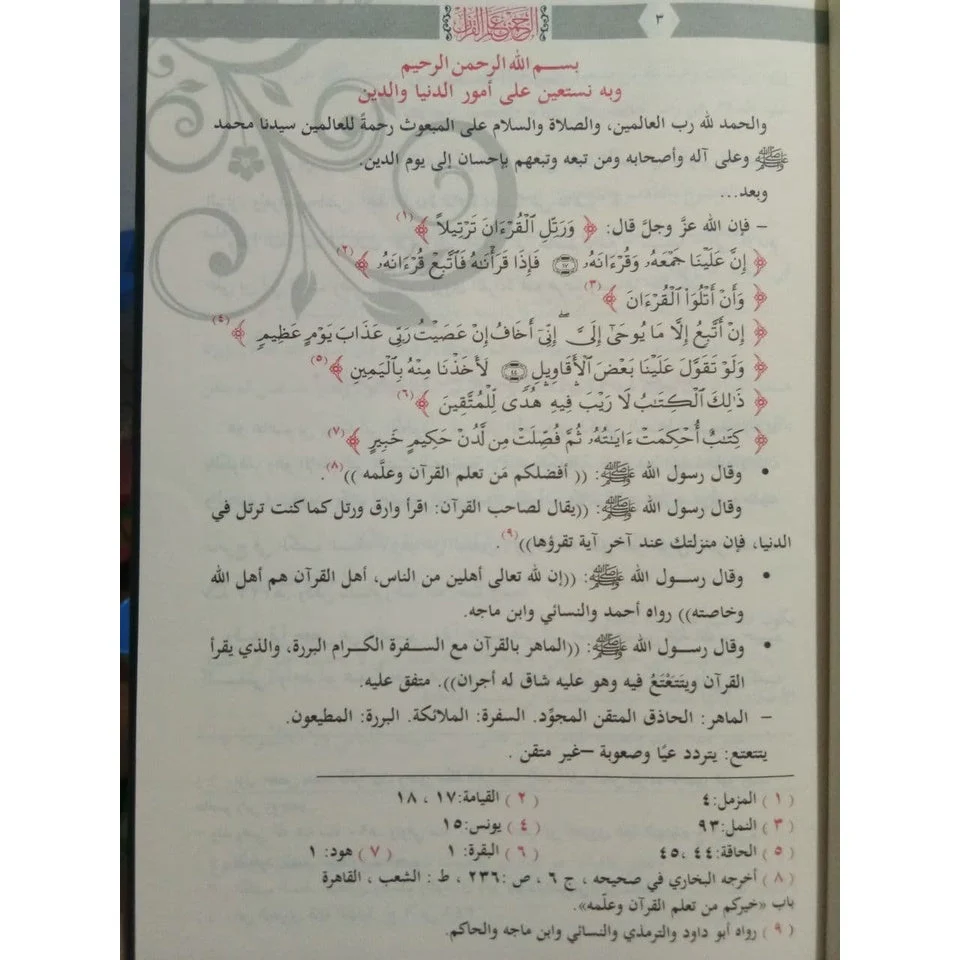 ٣
الرحمن علم القرآن
بســم الله الرحمن الرحيم
وبه نستعين على أمور الدنيا والدين
والحمد لله رب العالمين، والصلاة والسلام على المبعوث رحمةً للعالمين سيدنا محمد
ﷺ وعلى آله وأصحابه ومن تبعه وتبعهم بإحسان إلى يوم الدين.
وبعد...
– فإن الله عزَّ وجلَّ قال: ﴿ وَرَتِّلِ ٱلْقُرْءَانَ تَرْتِيلاً ﴾(١)
﴿ إِنَّ عَلَيْنَا جَمْعَهُۥ وَقُرْءَانَهُۥ ١٧ فَإِذَا قَرَأْنَٰهُ فَٱتَّبِعْ قُرْءَانَهُۥ ﴾(٢)
﴿ وَأَنْ أَتْلُوَا۟ ٱلْقُرْءَانَ ﴾(٣)
﴿ إِنْ أَتَّبِعُ إِلَّا مَا يُوحَىٰٓ إِلَىَّ ۖ إِنِّىٓ أَخَافُ إِنْ عَصَيْتُ رَبِّى عَذَابَ يَوْمٍ عَظِيمٍ ﴾(٤)
﴿ وَلَوْ تَقَوَّلَ عَلَيْنَا بَعْضَ ٱلْأَقَاوِيلِ ٤٤ لَأَخَذْنَا مِنْهُ بِٱلْيَمِينِ ﴾(٥)
﴿ ذَٰلِكَ ٱلْكِتَٰبُ لَا رَيْبَ فِيهِ هُدًى لِّلْمُتَّقِينَ ﴾(٦)
﴿ كِتَٰبٌ أُحْكِمَتْ ءَايَٰتُهُۥ ثُمَّ فُصِّلَتْ مِن لَّدُنْ حَكِيمٍ خَبِيرٍ ﴾(٧)
• وقال رسول الله ﷺ: (( أفضلكم مَن تعلم القرآن وعلَّمه ))(٨).
• وقال رسول الله ﷺ: ((يقال لصاحب القرآن: اقرأ وارق ورتل كما كنت ترتل في
الدنيا، فإن منزلتك عند آخر آية تقرؤها))(٩).
• وقال رســول الله ﷺ: ((إن لله تعالى أهلين من الناس، أهل القرآن هم أهل الله
وخاصته)) رواه أحمد والنسائي وابن ماجه.
• وقال رســول الله ﷺ: ((الماهر بالقرآن مع السفرة الكــرام البررة، والذي يقرأ
القرآن ويتَتَعْتَعُ فيه وهو عليه شاق له أجران)). متفق عليه.
– الماهر: الحاذق المتقن المجوِّد. السفرة: الملائكة. البررة: المطيعون.
يتتعتع: يتردد عيًا وصعوبة –غير متقن .
(١) المزمل:٤ (٢) القيامة:١٧ ، ١٨
(٣) النمل:٩٣ (٤) يونس:١٥
(٥) الحاقة:٤٤ ،٤٥ (٦) البقرة: ١ (٧) هود: ١
(٨) أخرجه البخاري في صحيحه ، ج ٦ ، ص :٢٣٦ ، ط : الشعب ، القاهرة
باب «خيركم من تعلم القرآن وعلّمه».
(٩) رواه أبو داود والترمذي والنسائي وابن ماجه والحاكم.